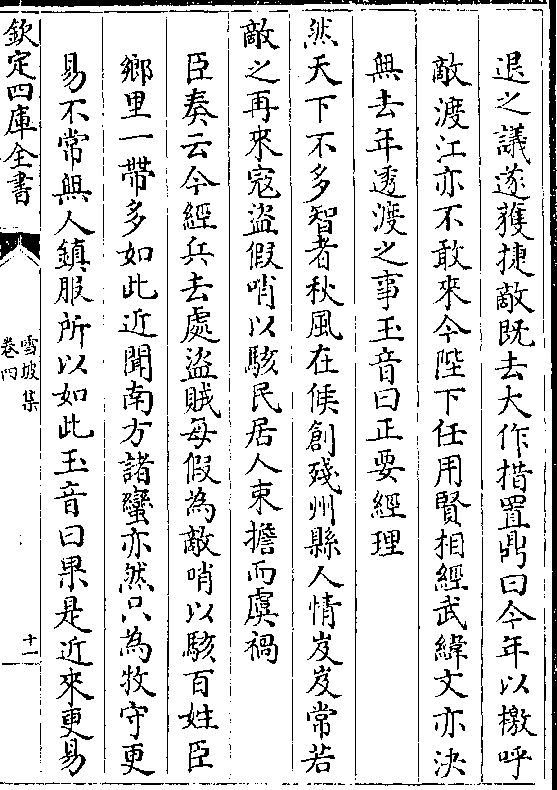 退之議遂獲捷敵既去大作措置鼎曰今年以檄呼
敵渡江亦不敢來今陛下任用賢相經武緯文亦決
無去年透渡之事玉音曰正要經理
然天下不多智者秋風在候創殘州縣人情岌岌常若
敵之再來寇盜假哨以駭民居人束擔而虞禍
臣奏云今經兵去處盜賊每假為敵哨以駭百姓臣
鄉里一帶多如此近聞南方諸蠻亦然只為牧守更
易不常無人鎮服所以如此玉音曰果是近來更易
欽定四庫全書
雪坡集
卷四
十一